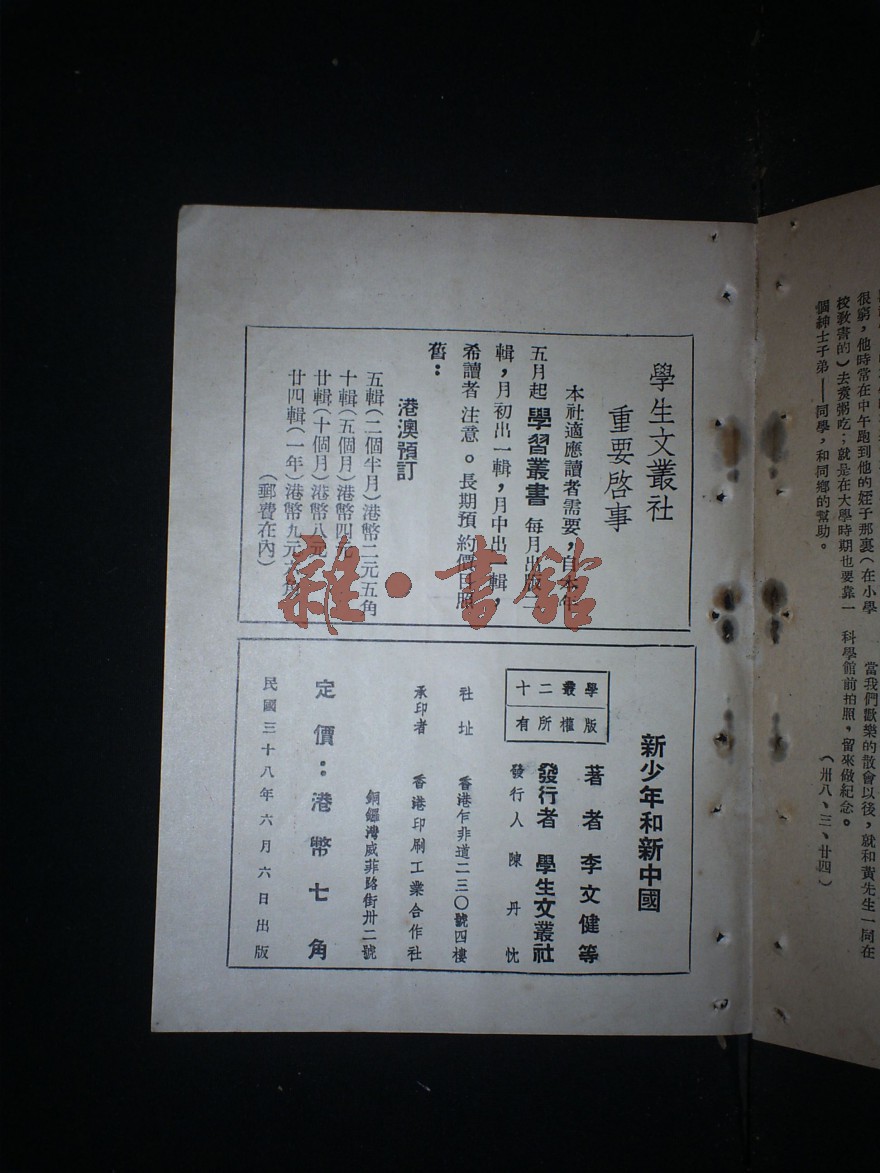 很窮，他時常在中午跑到他的姪子那裏（在小學
校教書的）去喪粥吃；就是在大學時期也要靠一
個紳士子弟——同學，和同鄉的幫助。
當我們歡樂的散會以後，就和黃先生一同在
科學館前拍照，留來做紀念。
（卅八、三、廿四）
學生文叢社
重要啓事
本社適應讀者需要，自本年
五月起 學習叢書 每月出版二
輯，月初出一輯，月中出一輯，
希讀者注意。長期預約價目照
舊：
港澳預訂
五輯（二個半月）港幣二元五角
十輯（五個月）港幣四元
廿輯（十個月）港幣八元
廿四輯（一年）港幣九元六角
（郵費在內）
新少年和新中國
著者 李文健等
學叢二十
版權所有
發行者 學生文叢社
發行人 陳丹忱
社址 香港乍非道二三〇號四樓
承印者 香港印刷工業合作社
銅鑼灣威菲路街卅二號
定價：港幣七角
民國三十八年六月六日出版
雜·書館